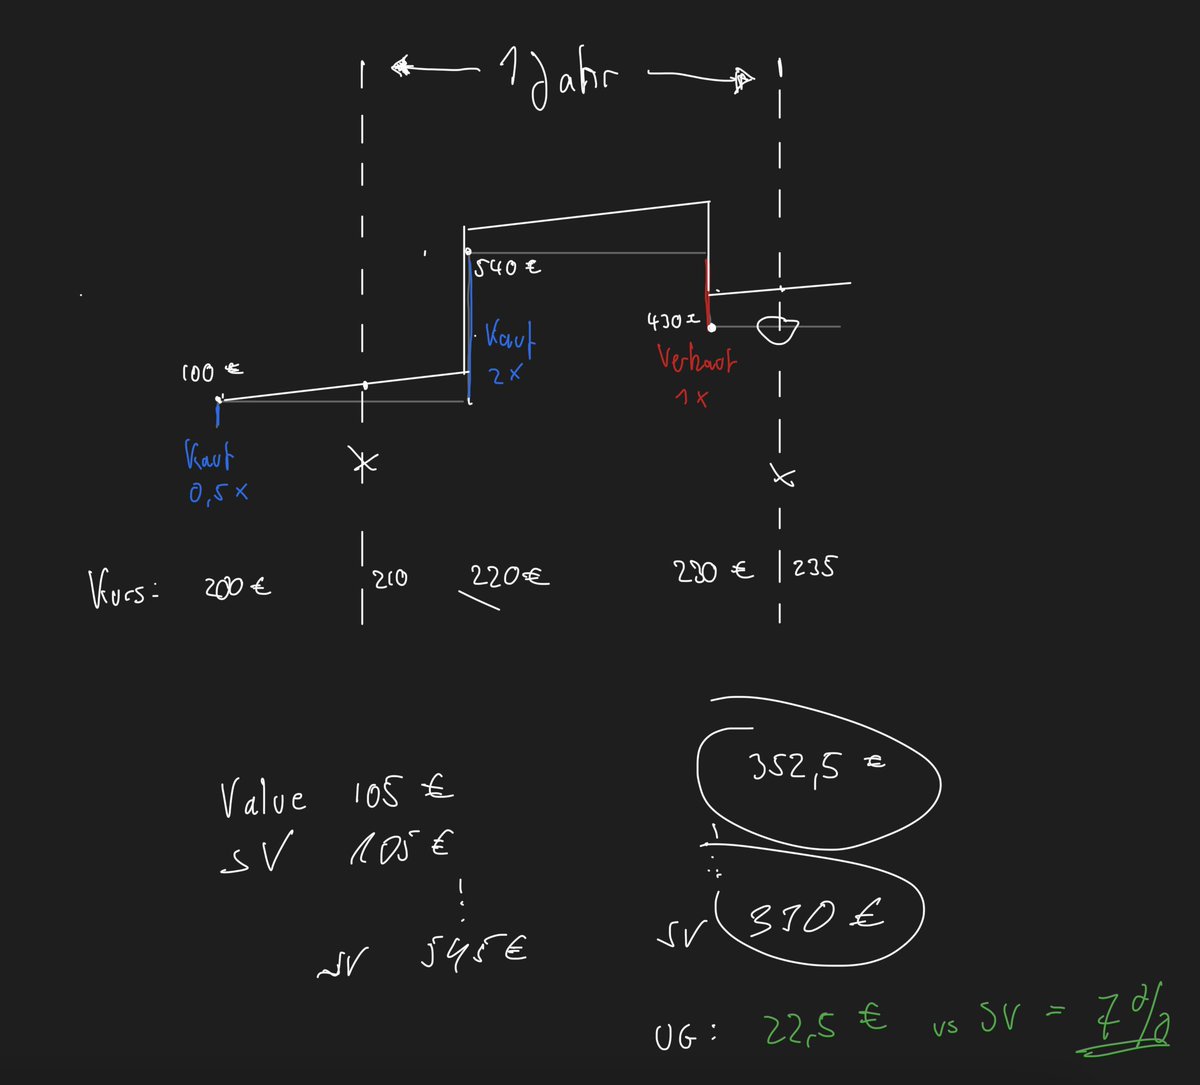 1 Jahr
540 €
430 €
Kauf
2x
Verkauf
1x
100 €
Kauf
0,5x
Kurs: 200 € 210 220 € 230 € 235
352,5 €
Value 105 €
SV 105 €
SV 330 €
SV 545 €
UG: 22,5 € vs SV = 7%